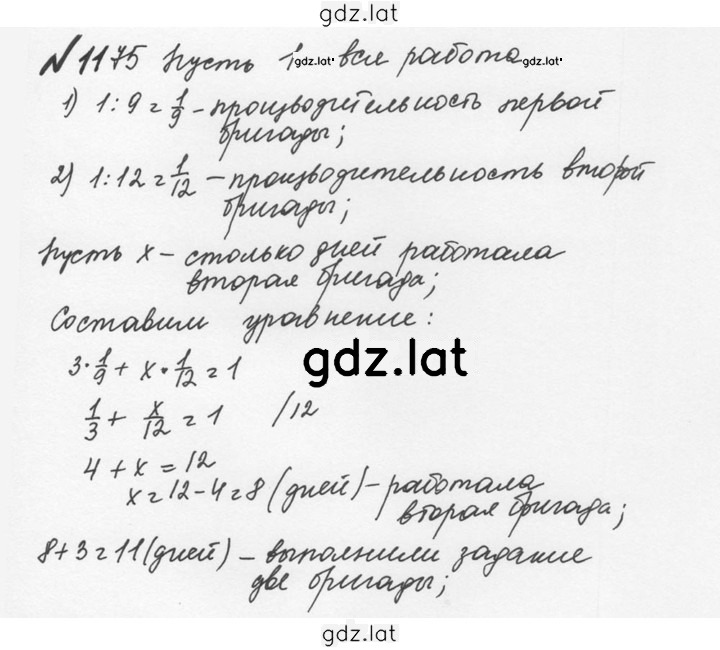 gdz.lat
№1175 Пусть 1 gdz.lat вся работа gdz.lat
1) 1:9=1/9 – производительность первой
бригады;
2) 1:12=1/12 – производительность второй
бригады;
Пусть x – столько дней работала
вторая бригада;
Составим уравнение:
3·1/9 + x·1/12 = 1
gdz.lat
1/3 + x/12 = 1 /12
4 + x = 12
x = 12 - 4 = 8 (дней) – работала
вторая бригада;
8+3=11 (дней) – выполнили задание
две бригады;
gdz.lat